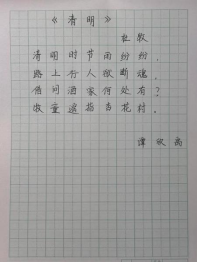 《清明》
杜牧
清明时节雨纷纷，
路上行人欲断魂。
借问酒家何处有？
牧童遥指杏花村。
谭